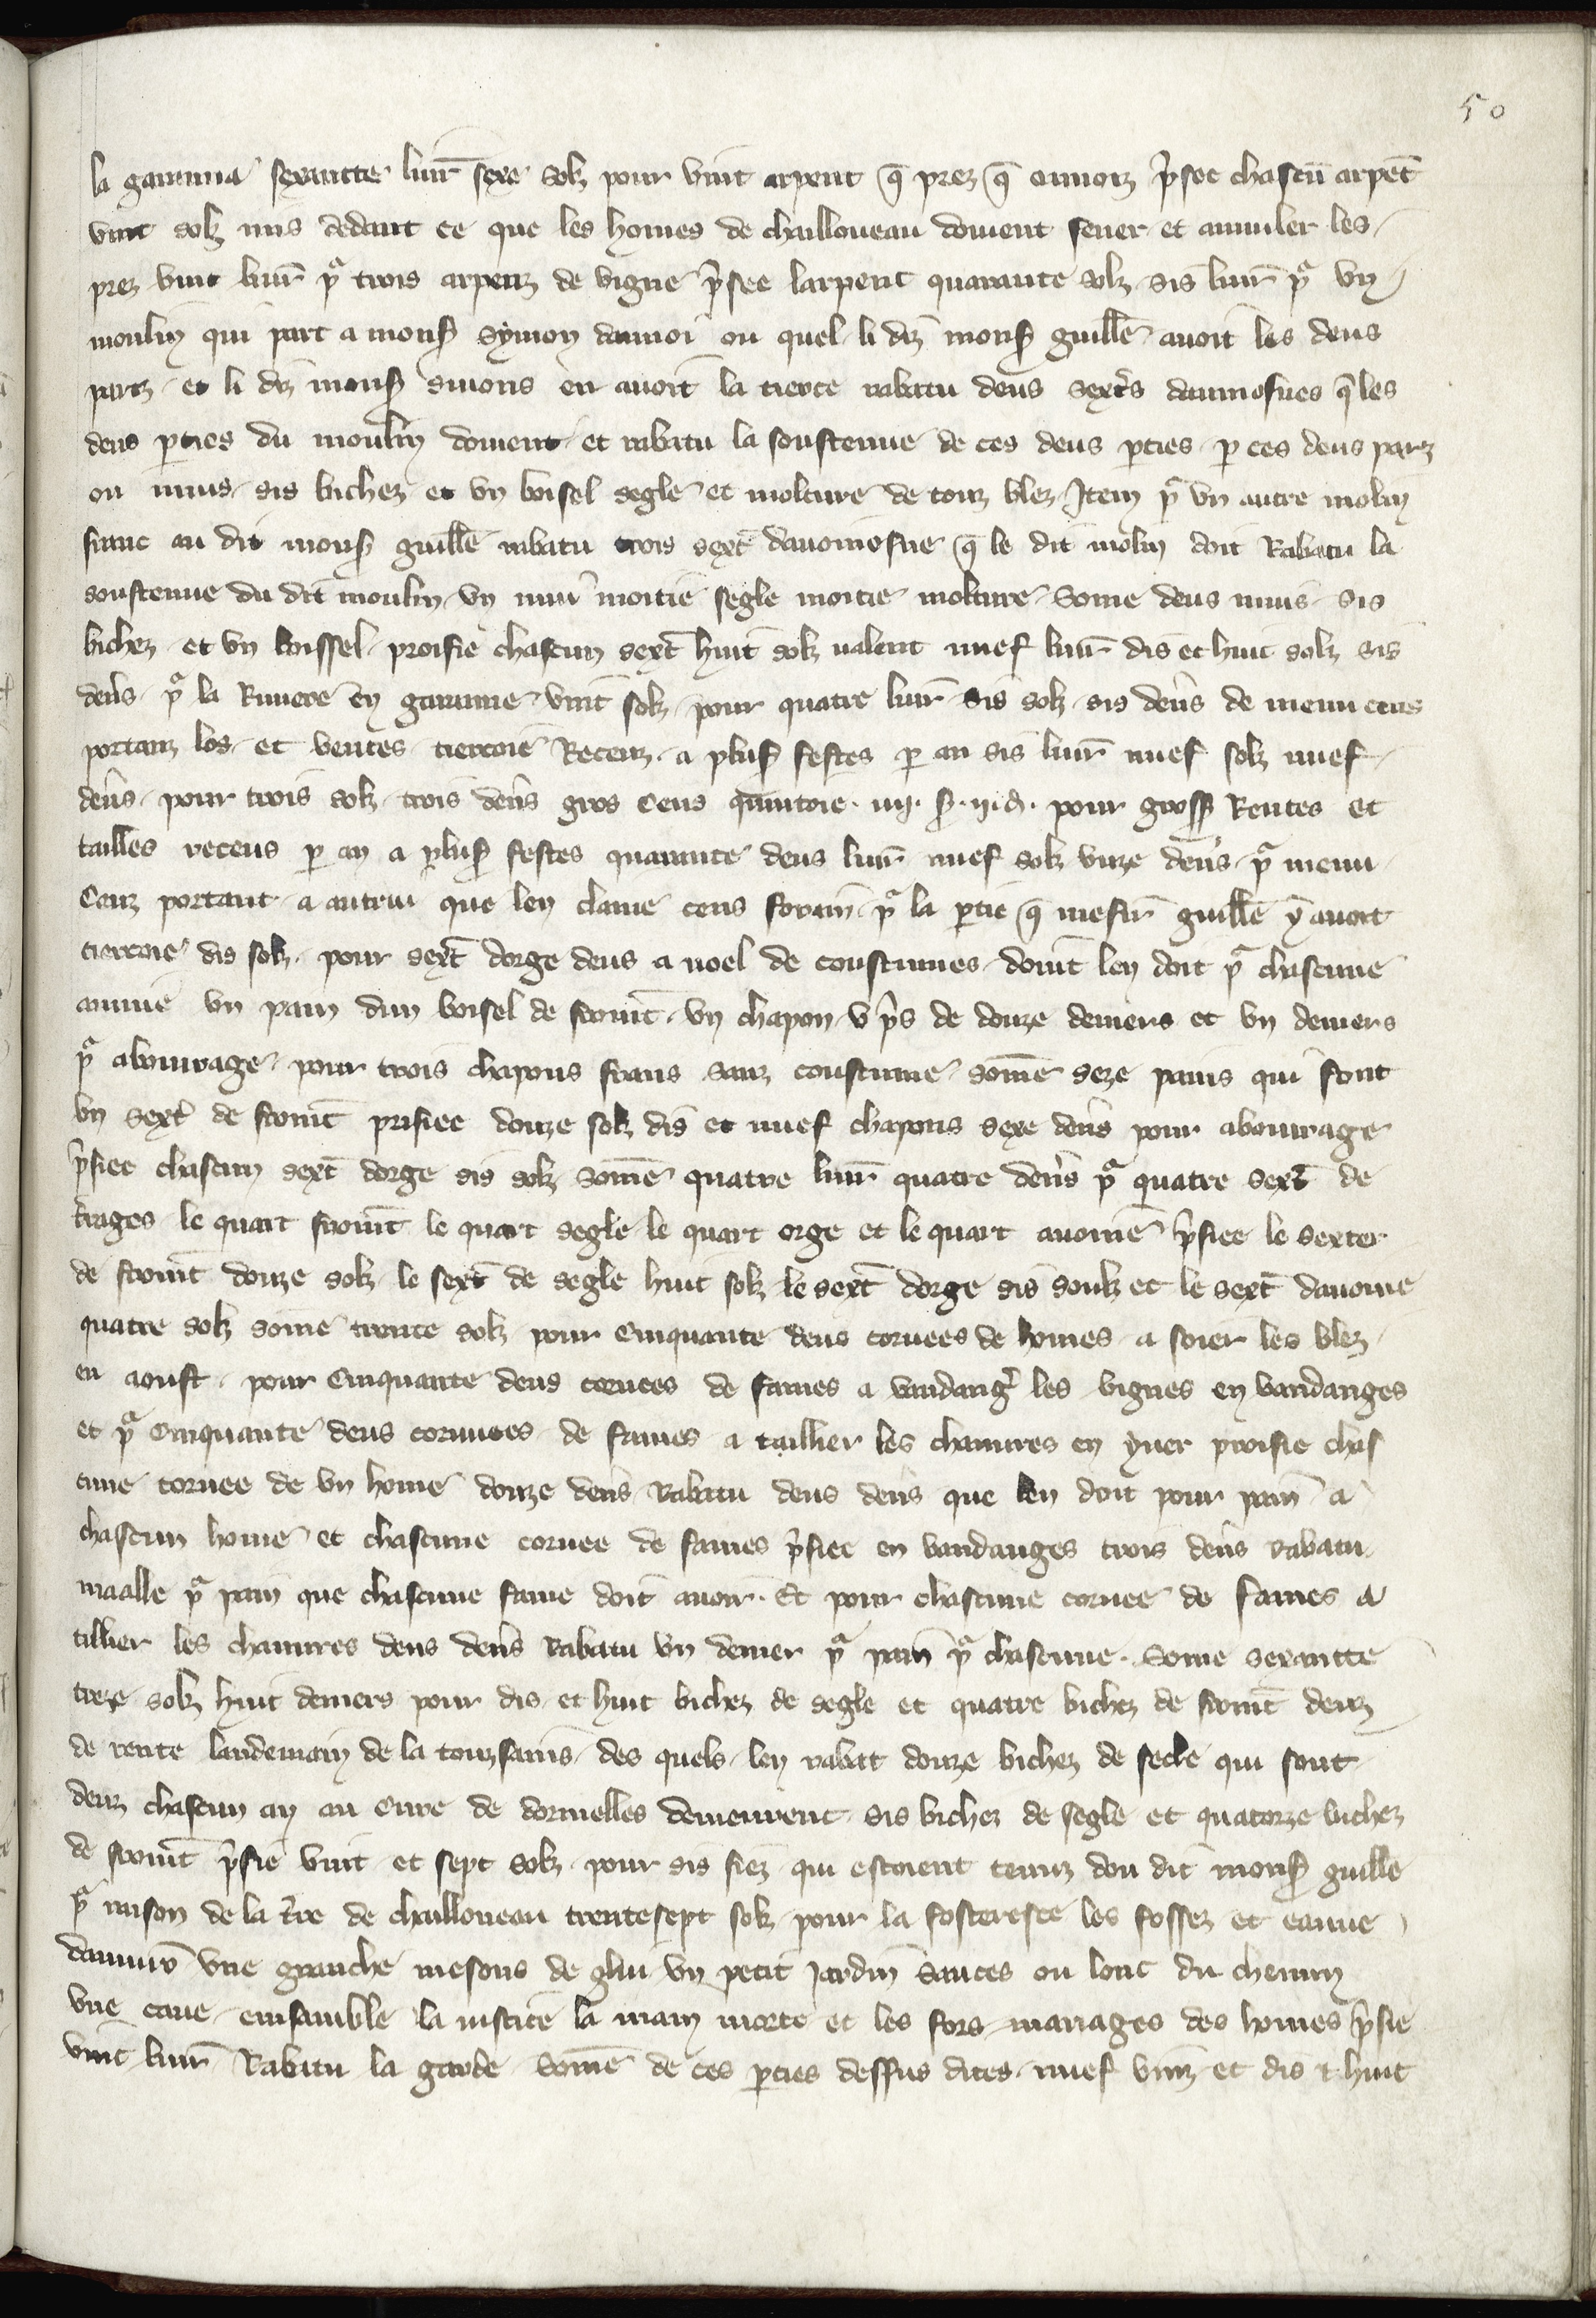 50
la garenna sexantte liur̄ seze solz pour vint arpent q̄ prez q̄ aunoiz p̄sec chascū arpēt
vint solz mis dedant ce que les homes de chailloueau doiuent fener et amuler les
prez vint liur̄ pᵃ trois arpenz de vigne p̄see larpent quarante solz sis liur̄ pᵃ vn
moulin qui part a monsʳ symon ou quel li diz monsʳ guille auoit les deus
parz et li diz monsʳ simons en auoit la tierce rabatu deus sextˢ daumosnes q̄ les
deus pties du moulin doiuent et rabatu la soustenue de ces deus pties p ces deus parz
ou muis sis bichez et vn boisel segle et molture de touz blez Item pᵃ vn autre molin
franc au dit monsʳ guille rabatu trois sext̄ daumosne q̄ le dit molin doit Rabatu la
soustenue du dit moulin vn mui moitie segle moitie molture Some deus muis sis
bichez et vn boissel proisie chascun sext̄ huit solz ualent nuef liur̄ dis et huit solz sis
den̄s pᵃ la Riuiere en garenne vint solz pour quatre liur̄ sis solz sis den̄s de menu cens
portanz los et ventes tierçoie Receuz a plusʳ festes p an sis liur̄ nuef solz nuef
den̄s pour trois solz trois den̄s gros Cens quintoie .iiij. s. ij. d. pour grossʳ Rentes et
tailles receus p an a plusʳ festes quarante deus liur̄ nuef solz vnze den̄s pᵃ menu
Cenz portant a autrui que len claime cens forain pᵃ la ptie q̄ mesir̄ guille y auoit
tierçoie dis solz pour sext̄ dorge deus a noel de coustumes dont len doit pᵃ chascune
mine vn pain dun boisel de fromt̄ vn chapon v p̄s de douze deniers et vn deniers
pᵃ abouurage pour trois chapons frans sanz coustume somē seze pains qui font
vn sext̄ de fromt̄ prisiee douze solz dis et nuef chapons seze den̄s pour abouurage
p̄siee chascun sext̄ dorge sis solz Somē quatre liur̄ quatre den̄s pᵃ quatre sext̄ de
t̄rages le quart fromt̄ le quart segle le quart orge et le quart auoine p̄siee le sexter
de fromt̄ douze solz le sext̄ de segle huit solz le sext̄ dorge sis soulz et le sext̄ dauoine
quatre solz somē trente solz pour Cinquante deus coruees de homes a soier les blez
en aoust pour Cinquante deus coruees de fames a vandangʳ les vignes en vandanges
et pᵃ Cinquante deus coruees de fames a taillier les chanures en yuer proisie chas
cune coruee de vn home douze den̄s Rabatu deus den̄s que len doit pour pain a
chascun home et chascune coruee de fames p̄siee en vandanges trois den̄s rabatu
maalle pᵃ pain que chascune fame doit auoir Et pour chascune coruee de fames a
tillier les chanures deus den̄s Rabatu vn denier pᵃ pain pᵃ chascune. Some sexantte
treze solz huit deniers pour dis et huit bichez de segle et quatre bichez de fromt̄ deuz
de rente landemain de la touzsains des quels len rabat douze bichez de segle qui sont
deuz chascun an au Cure de dormelles demeurent sis bichez de segle et quatorze bichez
de fromt̄ p̄sie vint et sept solz pour sis fiez qui estoient tenuz dou dit monsʳ guille
pᵃ raison de la t̄re de chailloueau trentesept solz pour la forteresce les fossez et eaune
une granche mesons de glui vn petit jardin Sauces ou lonc du chemin
vne caue ensamble la iustice la main morte et les fors mariages des homes p̄sie
vint liur̄ Rabatu la garde Somē de ces pties dessus dites nuef vinz et dis & huit